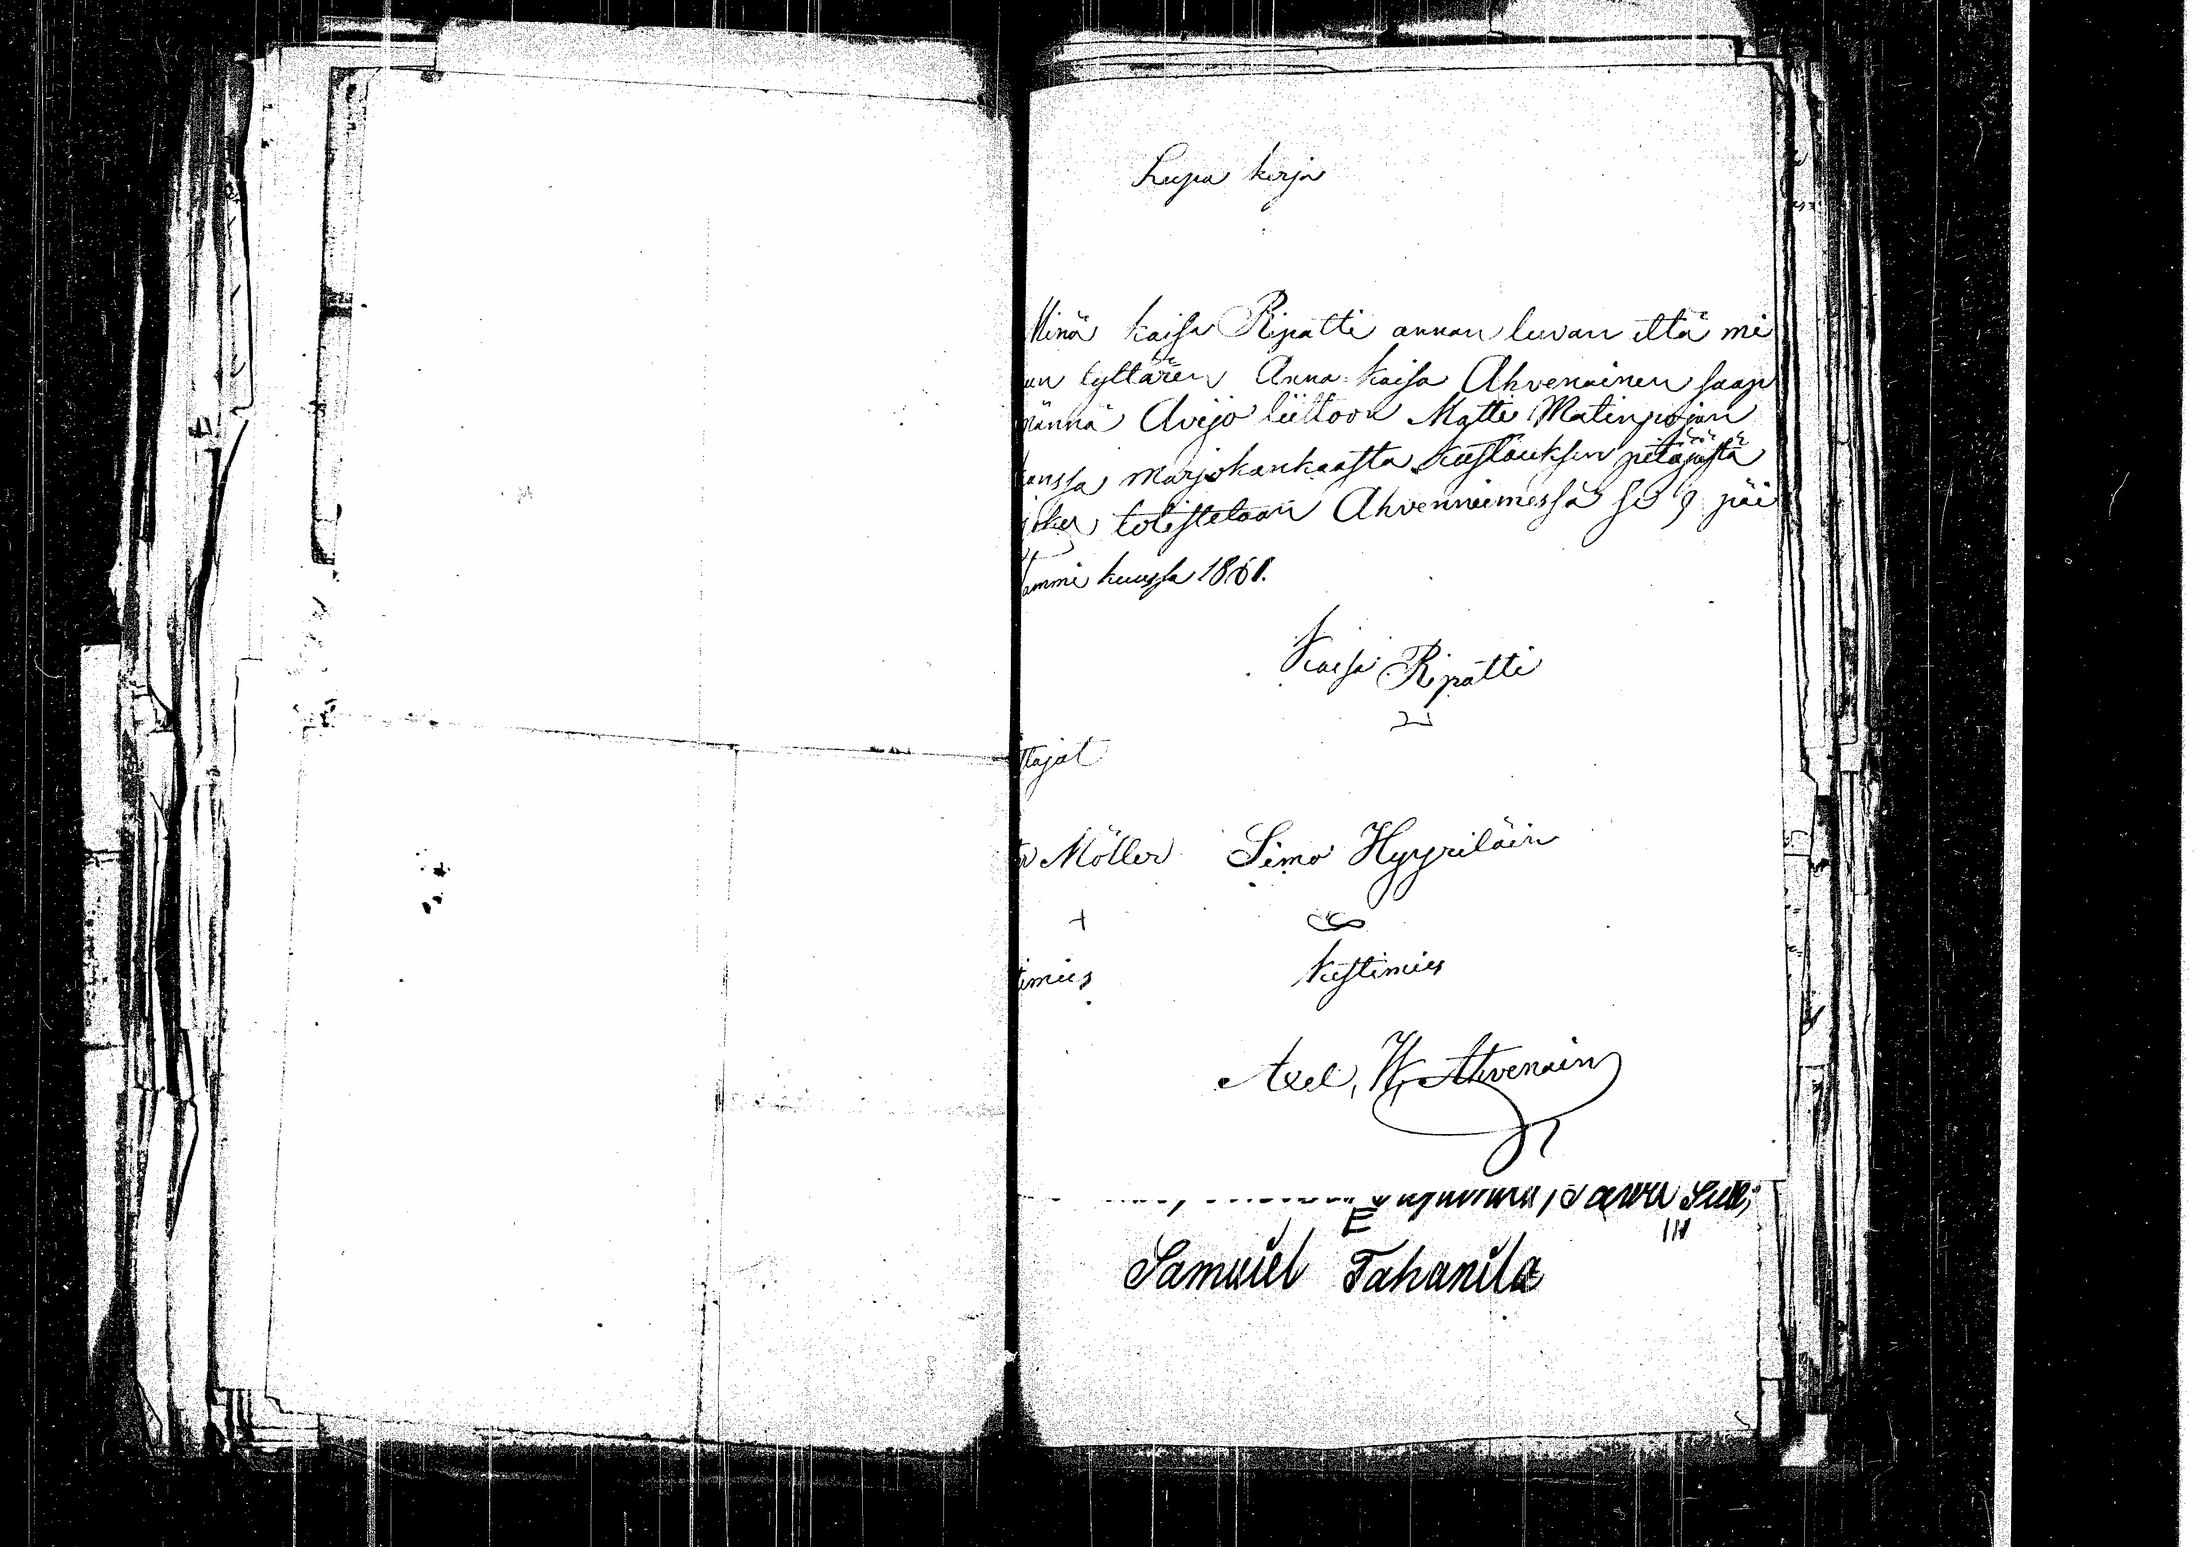 Lupa kirja
Minä kaisa Ripatti annan luvan että mi
an tyttären Anna kaisa Ahvenainen saap
männä Avijo liittoon Matti Matinpojan
anssa marjokankaasta kustauksen pitäjästä
joka totistetaan Ahvenniemessä se 9 päi
tammi kuussa 1861.
Kaisa Ripatti
ttajat
Möller Simo Hyyriläin
+
timies kestimies
Axel, W, Ahvenain
E
III
Samuiel Tahanila